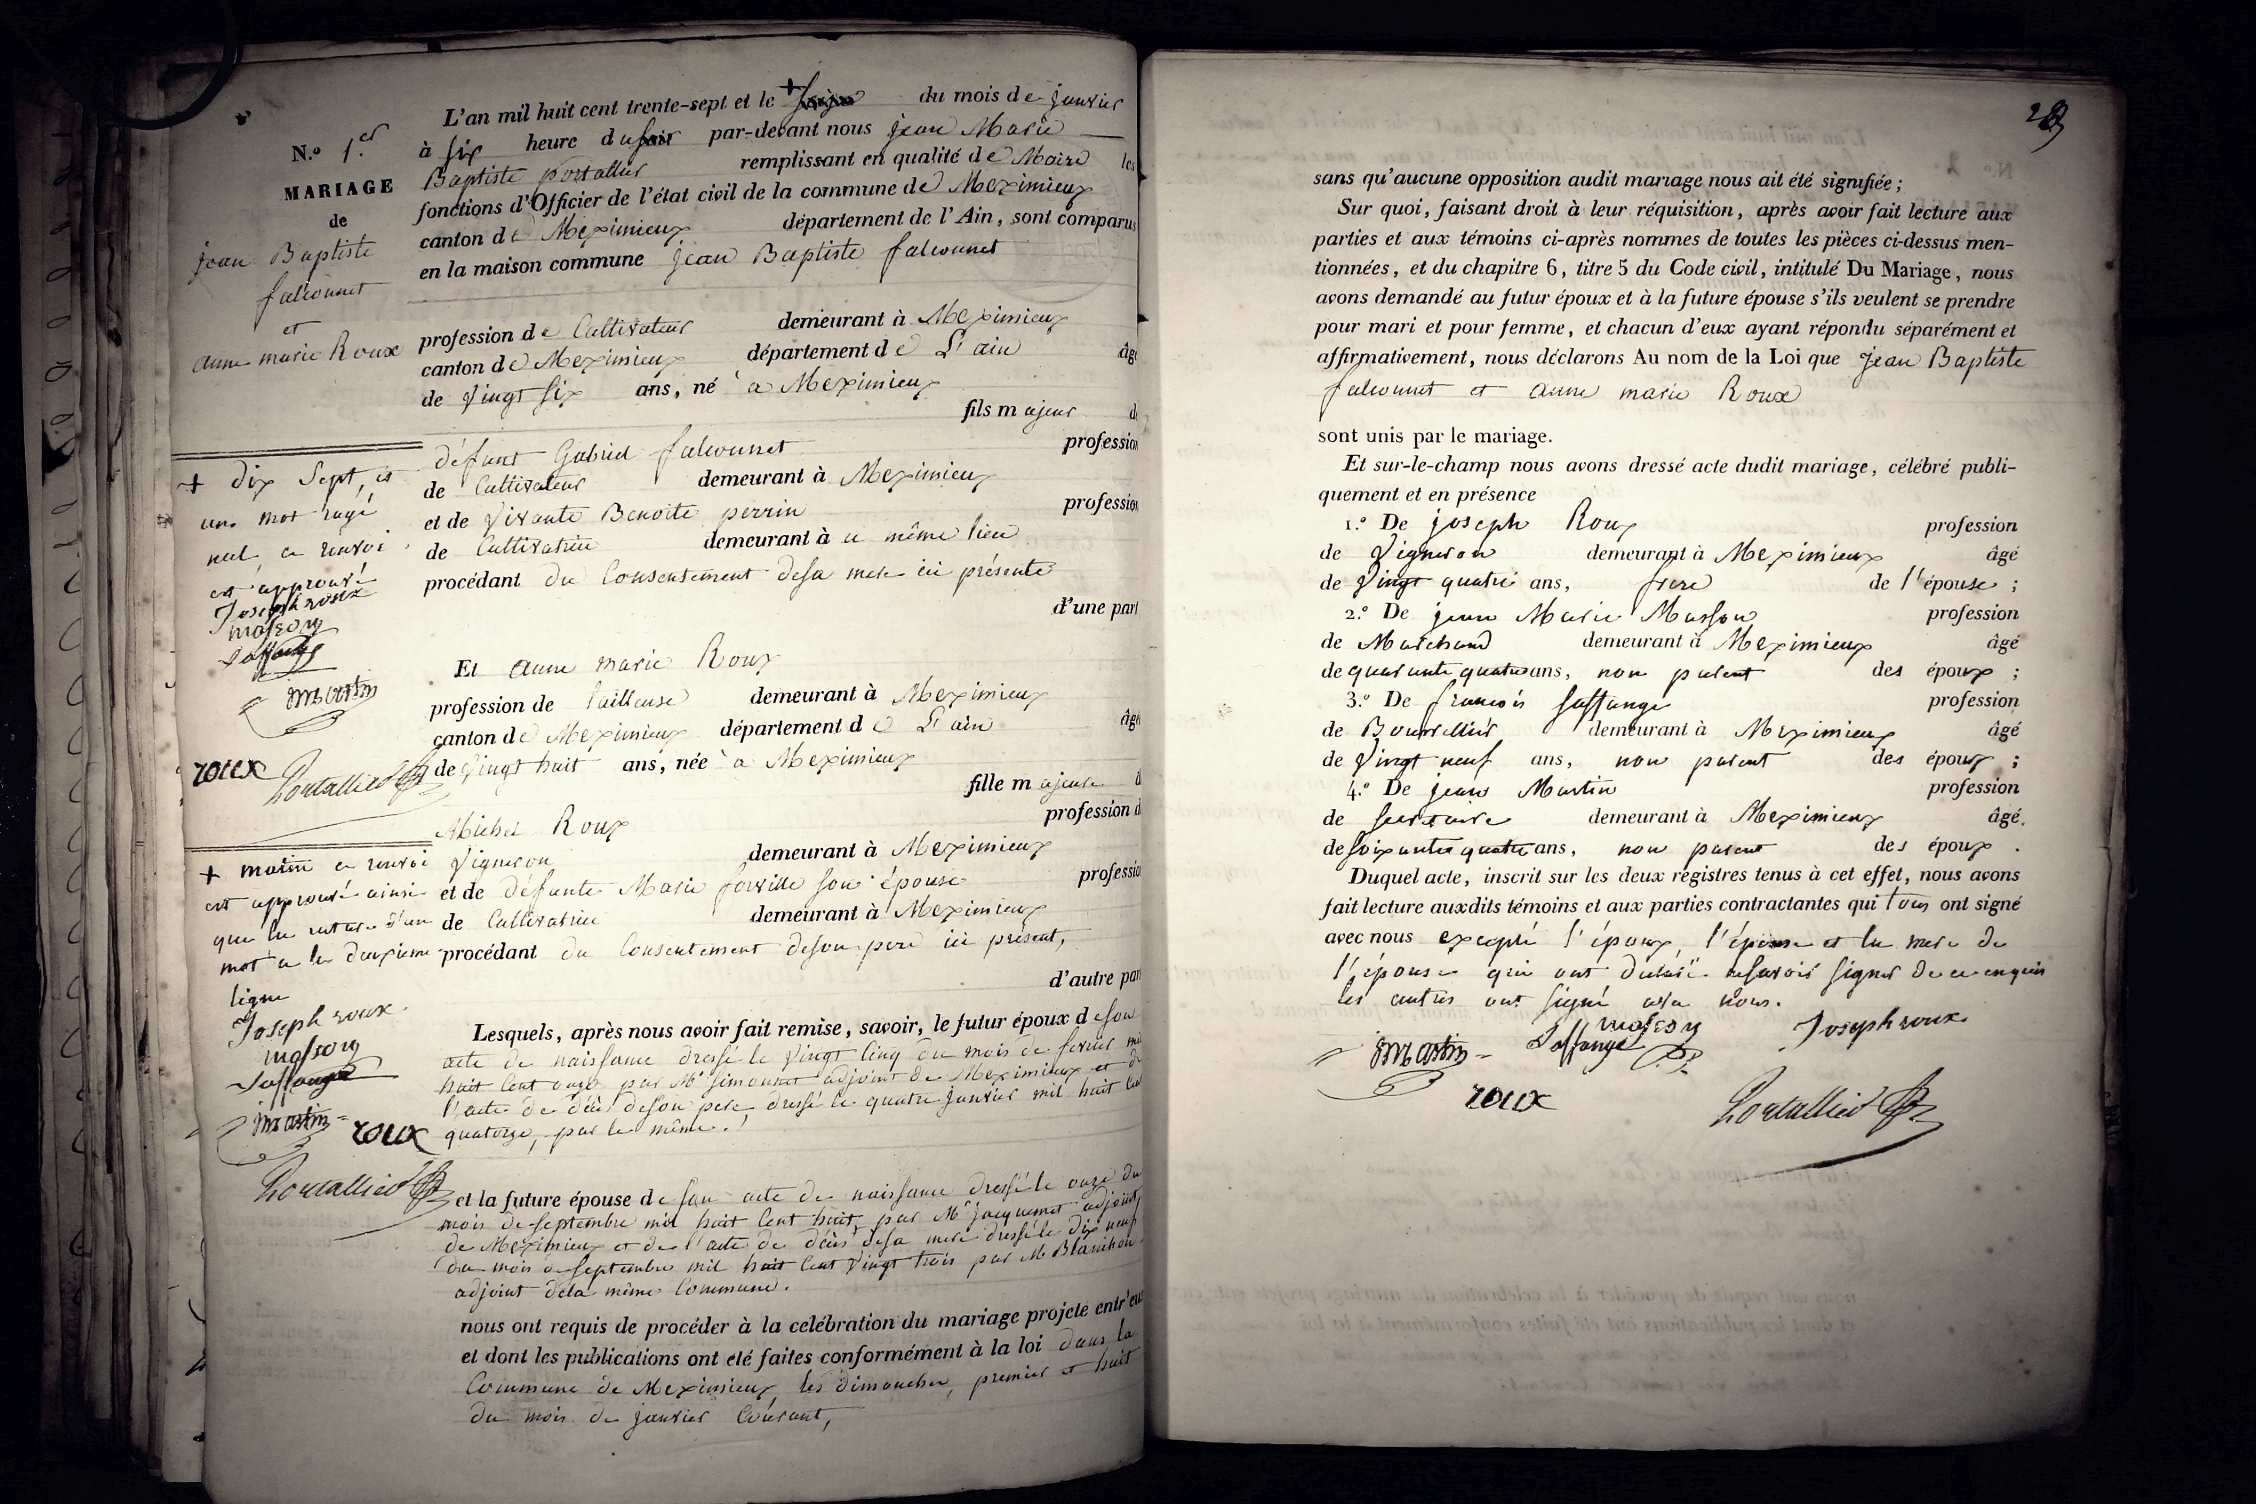 L'an mil huit cent trente-sept et le + seize du mois de janvier
à six heure du soir par-devant nous jean Marie
Baptiste portallier remplissant en qualité de Maire les
fonctions d'Officier de l'état civil de la commune de Meximieux
canton de Meximieux département de l'Ain, sont comparus
en la maison commune jean Baptiste falconnet
profession de Cultivateur demeurant à Meximieux
canton de Meximieux département de L'ain âgé
de vingt six ans, né à Meximieux
fils majeur d
défunt Gabriel falconnet profession
de Cultivateur demeurant à Meximieux
et de vivante Benoite perrin profession
de Cultivatrice demeurant à u même lieu
procédant du Consentement de sa mere ici présente
d'une part
Et anne marie Roux
profession de tailleuse demeurant à Meximieux
canton de Meximieux département de L'ain âgé
de vingt huit ans, née à Meximieux
fille majeure d
Michel Roux profession d
vigneron demeurant à Meximieux
et de défunte Marie forville son épouse profession
de Cultivatrice demeurant à Meximieux
procédant du Consentement de son pere ici présent,
d'autre part
Lesquels, après nous avoir fait remise, savoir, le futur époux de son
acte de naissance dressé le vingt cinq du mois de fevrier mil
huit cent onze par Mr simonnet adjoint de Meximieux et de
l'acte de décès de son pere, dressé le quatre janvier mil huit cent
quatorze, par le même.
et la future épouse de son acte de naissance dressé le onze du
mois de septembre mil huit cent huit, par Mr jacquemet adjoint
de Meximieux et de l'acte de décès de sa mere dressé le dix neuf
du mois de septembre mil huit cent vingt trois par Mr Blanchon
adjoint de la même Commune.
nous ont requis de procéder à la celébration du mariage projeté entr'eux
et dont les publications ont eté faites conformément à la loi dans la
Commune de Meximieux les dimanches, premier et huit
du mois de janvier courant,
N.º 1.er
MARIAGE
de
jean Baptiste
falconnet
et
anne marie Roux
+ dix sept, et
un mot rayé
nul, ce renvoi
est approuvé
Joseph roux
masson
Saffange
jmartin
roux
Portallier
+ matin ce renvoi
est approuvé ainsi
que la rature d'un
mot a la deuxieme
ligne
Joseph roux
masson
Saffange
jmartin
roux
Portallier
sans qu'aucune opposition audit mariage nous ait été signifiée;
Sur quoi, faisant droit à leur réquisition, après avoir fait lecture aux
parties et aux témoins ci-après nommes de toutes les pièces ci-dessus men-
tionnées, et du chapitre 6, titre 5 du Code civil, intitulé Du Mariage, nous
avons demandé au futur époux et à la future épouse s'ils veulent se prendre
pour mari et pour femme, et chacun d'eux ayant répondu séparément et
affirmativement, nous déclarons Au nom de la Loi que jean Baptiste
falconnet et anne marie Roux
sont unis par le mariage.
Et sur-le-champ nous avons dressé acte dudit mariage, célébré publi-
quement et en présence
1.º De joseph Roux profession
de vigneron demeurant à Meximieux âgé
de vingt quatre ans, frere de l'épouse;
2.º De jean Marie Masson profession
de Marchand demeurant à Meximieux âgé
de quarante quatre ans, non parent des époux;
3.º De francois saffange profession
de Bourrellier demeurant à Meximieux âgé
de vingt neuf ans, non parent des époux;
4.º De jean Martin profession
de secretaire demeurant à Meximieux âgé.
de soixante quatre ans, non parent des époux.
Duquel acte, inscrit sur les deux registres tenus à cet effet, nous avons
fait lecture auxdits témoins et aux parties contractantes qui tous ont signé
avec nous excepté l'époux, l'épouse et la mere de
l'épouse qui ont déclaré ne savoir signer de ce enquis
les autres ont signé avec nous.
jmartin Saffange masson Joseph roux
roux Portallier